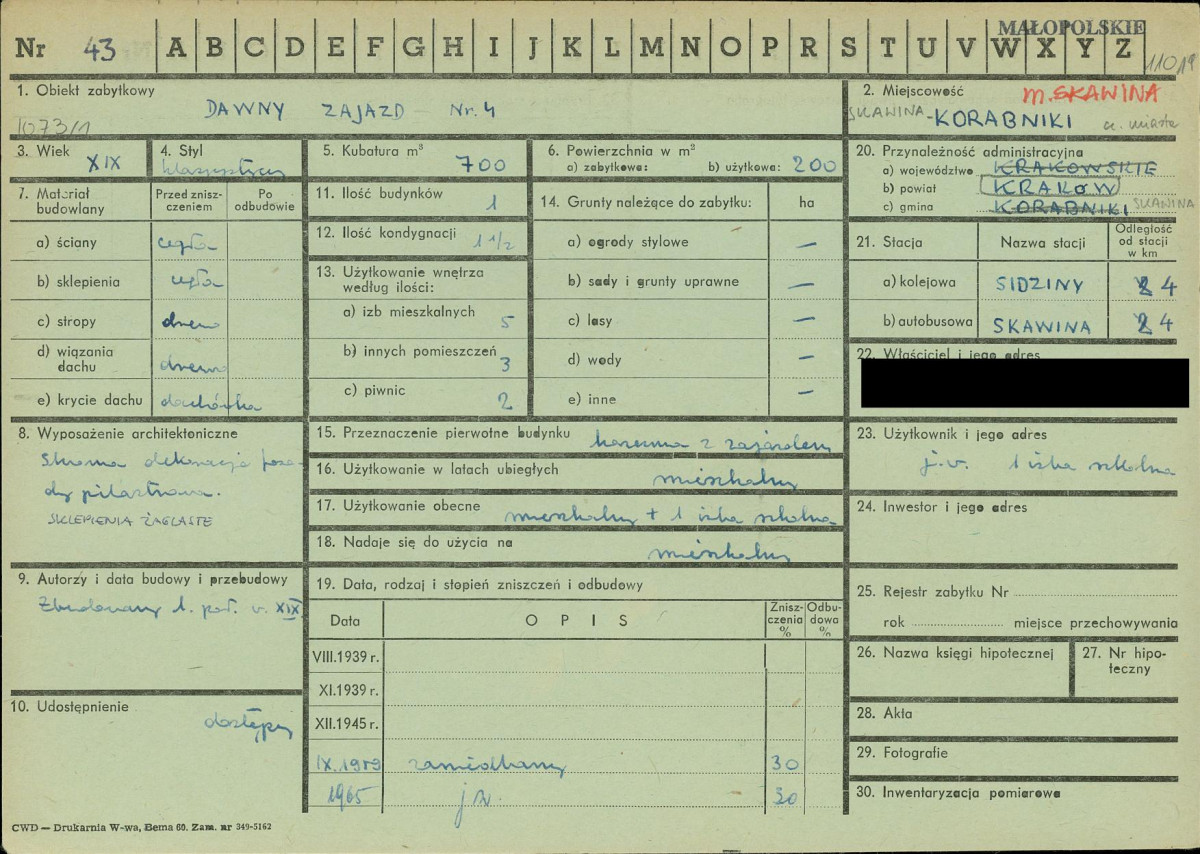 MAŁOPOLSKIE
Nr 43 A B C D E F G H I J K L M N O P R S T U V W X Y Z
11019
1. Obiekt zabytkowy
DAWNY ZAJAZD Nr. 4
1073/1
2. Miejscowość
m. SKAWINA
SKAWINA - KORABNIKI
3. Wiek
XIX
4. Styl
klasycystyczny
5. Kubatura m³
700
6. Powierzchnia w m²
a) zabytkowa: b) użytkowa: 200
20. Przynależność administracyjna
a) województwo KRAKOWSKIE
b) powiat KRAKÓW
c) gmina KORABNIKI SKAWINA
7. Materiał budowlany
Przed zniszczeniem
Po odbudowie
a) ściany cegła
b) sklepienia cegła
c) stropy drewno
d) wiązania dachu drewno
e) krycie dachu dachówka
11. Ilość budynków 1
12. Ilość kondygnacji 1 1/2
13. Użytkowanie wnętrza według ilości:
a) izb mieszkalnych 5
b) innych pomieszczeń 3
c) piwnic 2
14. Grunty należące do zabytku: ha
a) ogrody stylowe —
b) sady i grunty uprawne —
c) lasy —
d) wody —
e) inne —
21. Stacja
Nazwa stacji
Odległość od stacji w km
a) kolejowa SIDZINY 4
b) autobusowa SKAWINA 4
22. Właściciel i jego adres
8. Wyposażenie architektoniczne
Skromna dekoracja fasa-
dy pilastrowa.
SKLEPIENIA ŻAGLASTE
15. Przeznaczenie pierwotne budynku karczma z zajazdem
16. Użytkowanie w latach ubiegłych mieszkalny
17. Użytkowanie obecne mieszkalny + 1 izba szkolna
18. Nadaje się do użycia na mieszkalny
23. Użytkownik i jego adres
j.w. 1 izba szkolna
24. Inwestor i jego adres
9. Autorzy i data budowy i przebudowy
Zbudowany 1. poł. w. XIX.
10. Udostępnienie
dostępny
19. Data, rodzaj i stopień zniszczeń i odbudowy
Data OPIS Zniszczenia % Odbudowa %
VIII.1939 r.
XI.1939 r.
XII.1945 r.
IX.1959 zaniedbany 30
1965 j.w. 30
25. Rejestr zabytku Nr
rok miejsce przechowywania
26. Nazwa księgi hipotecznej
27. Nr hipoteczny
28. Akta
29. Fotografie
30. Inwentaryzacja pomiarowa
CWD — Drukarnia W-wa, Bema 60. Zam. nr 349-5162